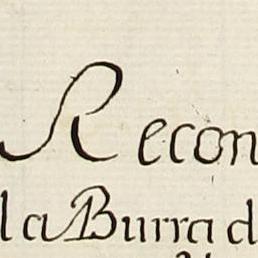 Recon
la Burra d